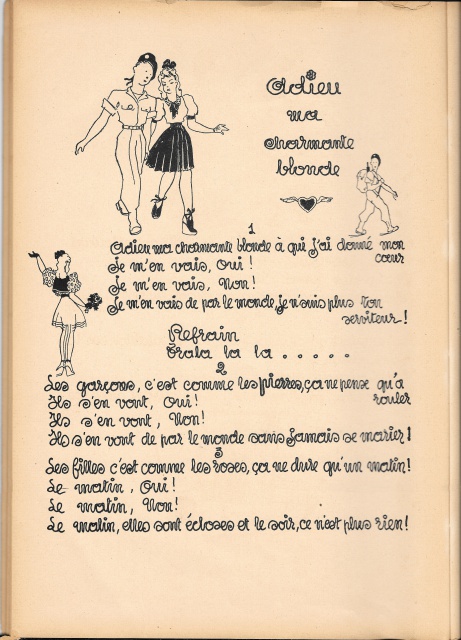 Adieu
ma
charmante
blonde
1
Adieu ma charmante blonde à qui j'ai donné mon
cœur
Je m'en vais, Oui !
Je m'en vais, Non !
Je m'en vais de par le monde, je n'suis plus ton
serviteur !
Refrain
Trala la la . . . . .
2
Les garçons, c'est comme les pierres, ça ne pense qu'à
rouler
Ils s'en vont, Oui !
Ils s'en vont, Non !
Ils s'en vont de par le monde sans jamais se marier !
3
Les filles c'est comme les roses, ça ne dure qu'un matin !
Le matin, Oui !
Le matin, Non !
Le matin, elles sont écloses et le soir, ce n'est plus rien !